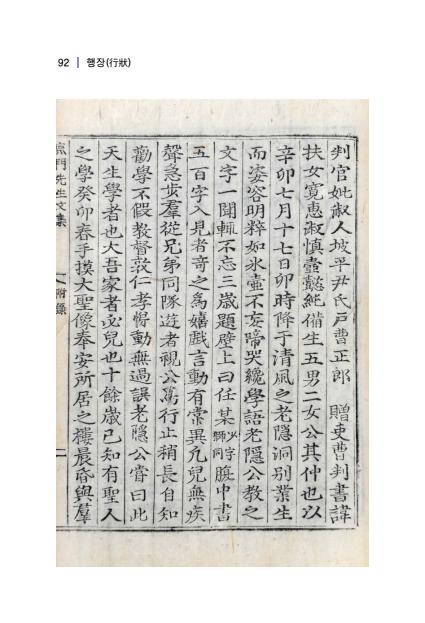 92 | 행장(行狀)
判官妣淑人坡平尹氏戸曹正郎 贈吏曹判書諱
扶女寬惠淑愼壼懿純備生五男二女公其仲也以
辛卯七月十七日卯時降于清風之老隱洞別業生
而姿容明粹如氷壺不妄啼哭纔學語老隱公敎之
文字一聞輒不忘三歲題壁上曰任某少字獅同腹中書
五百字入見者奇之爲嬉戲言動有常異凡兒無疾
聲急步羣從兄弟同隊遊者視公爲行止稍長自知
勸學不假敎督敦仁孝悌動無過誤老隱公嘗曰此
天生學者也大吾家者必兒也十餘歲已知有聖人
之學癸卯春手摸大聖像奉安所居之樓晨昏與羣
門先生文集 附錄 二